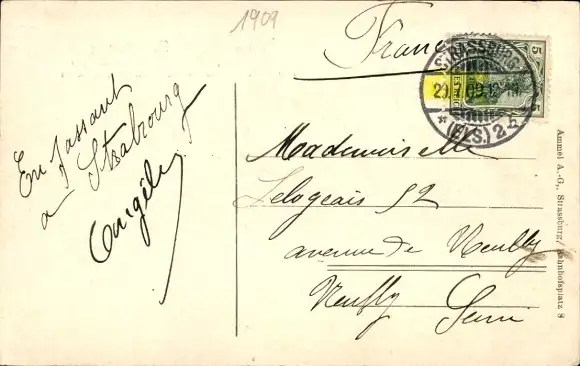 1909
En passant
a Strasbourg
Angèle
France
STRASSBURG
7.09.12
* (ELS.) 2 b
5
5
Mademoiselle
Lelogeais 92
avenue de Neuilly
Neuilly Seine
Ammel A.-G., Strassburg, Bahnhofsplatz 8